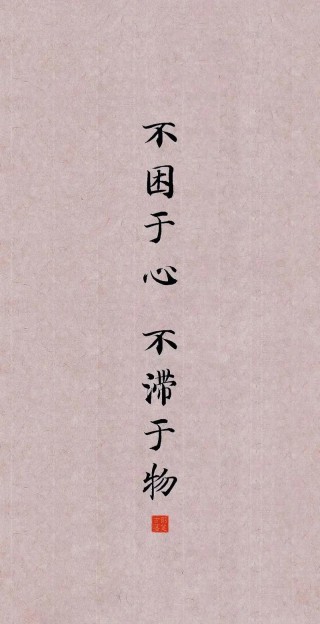 不困于心 不滞于物